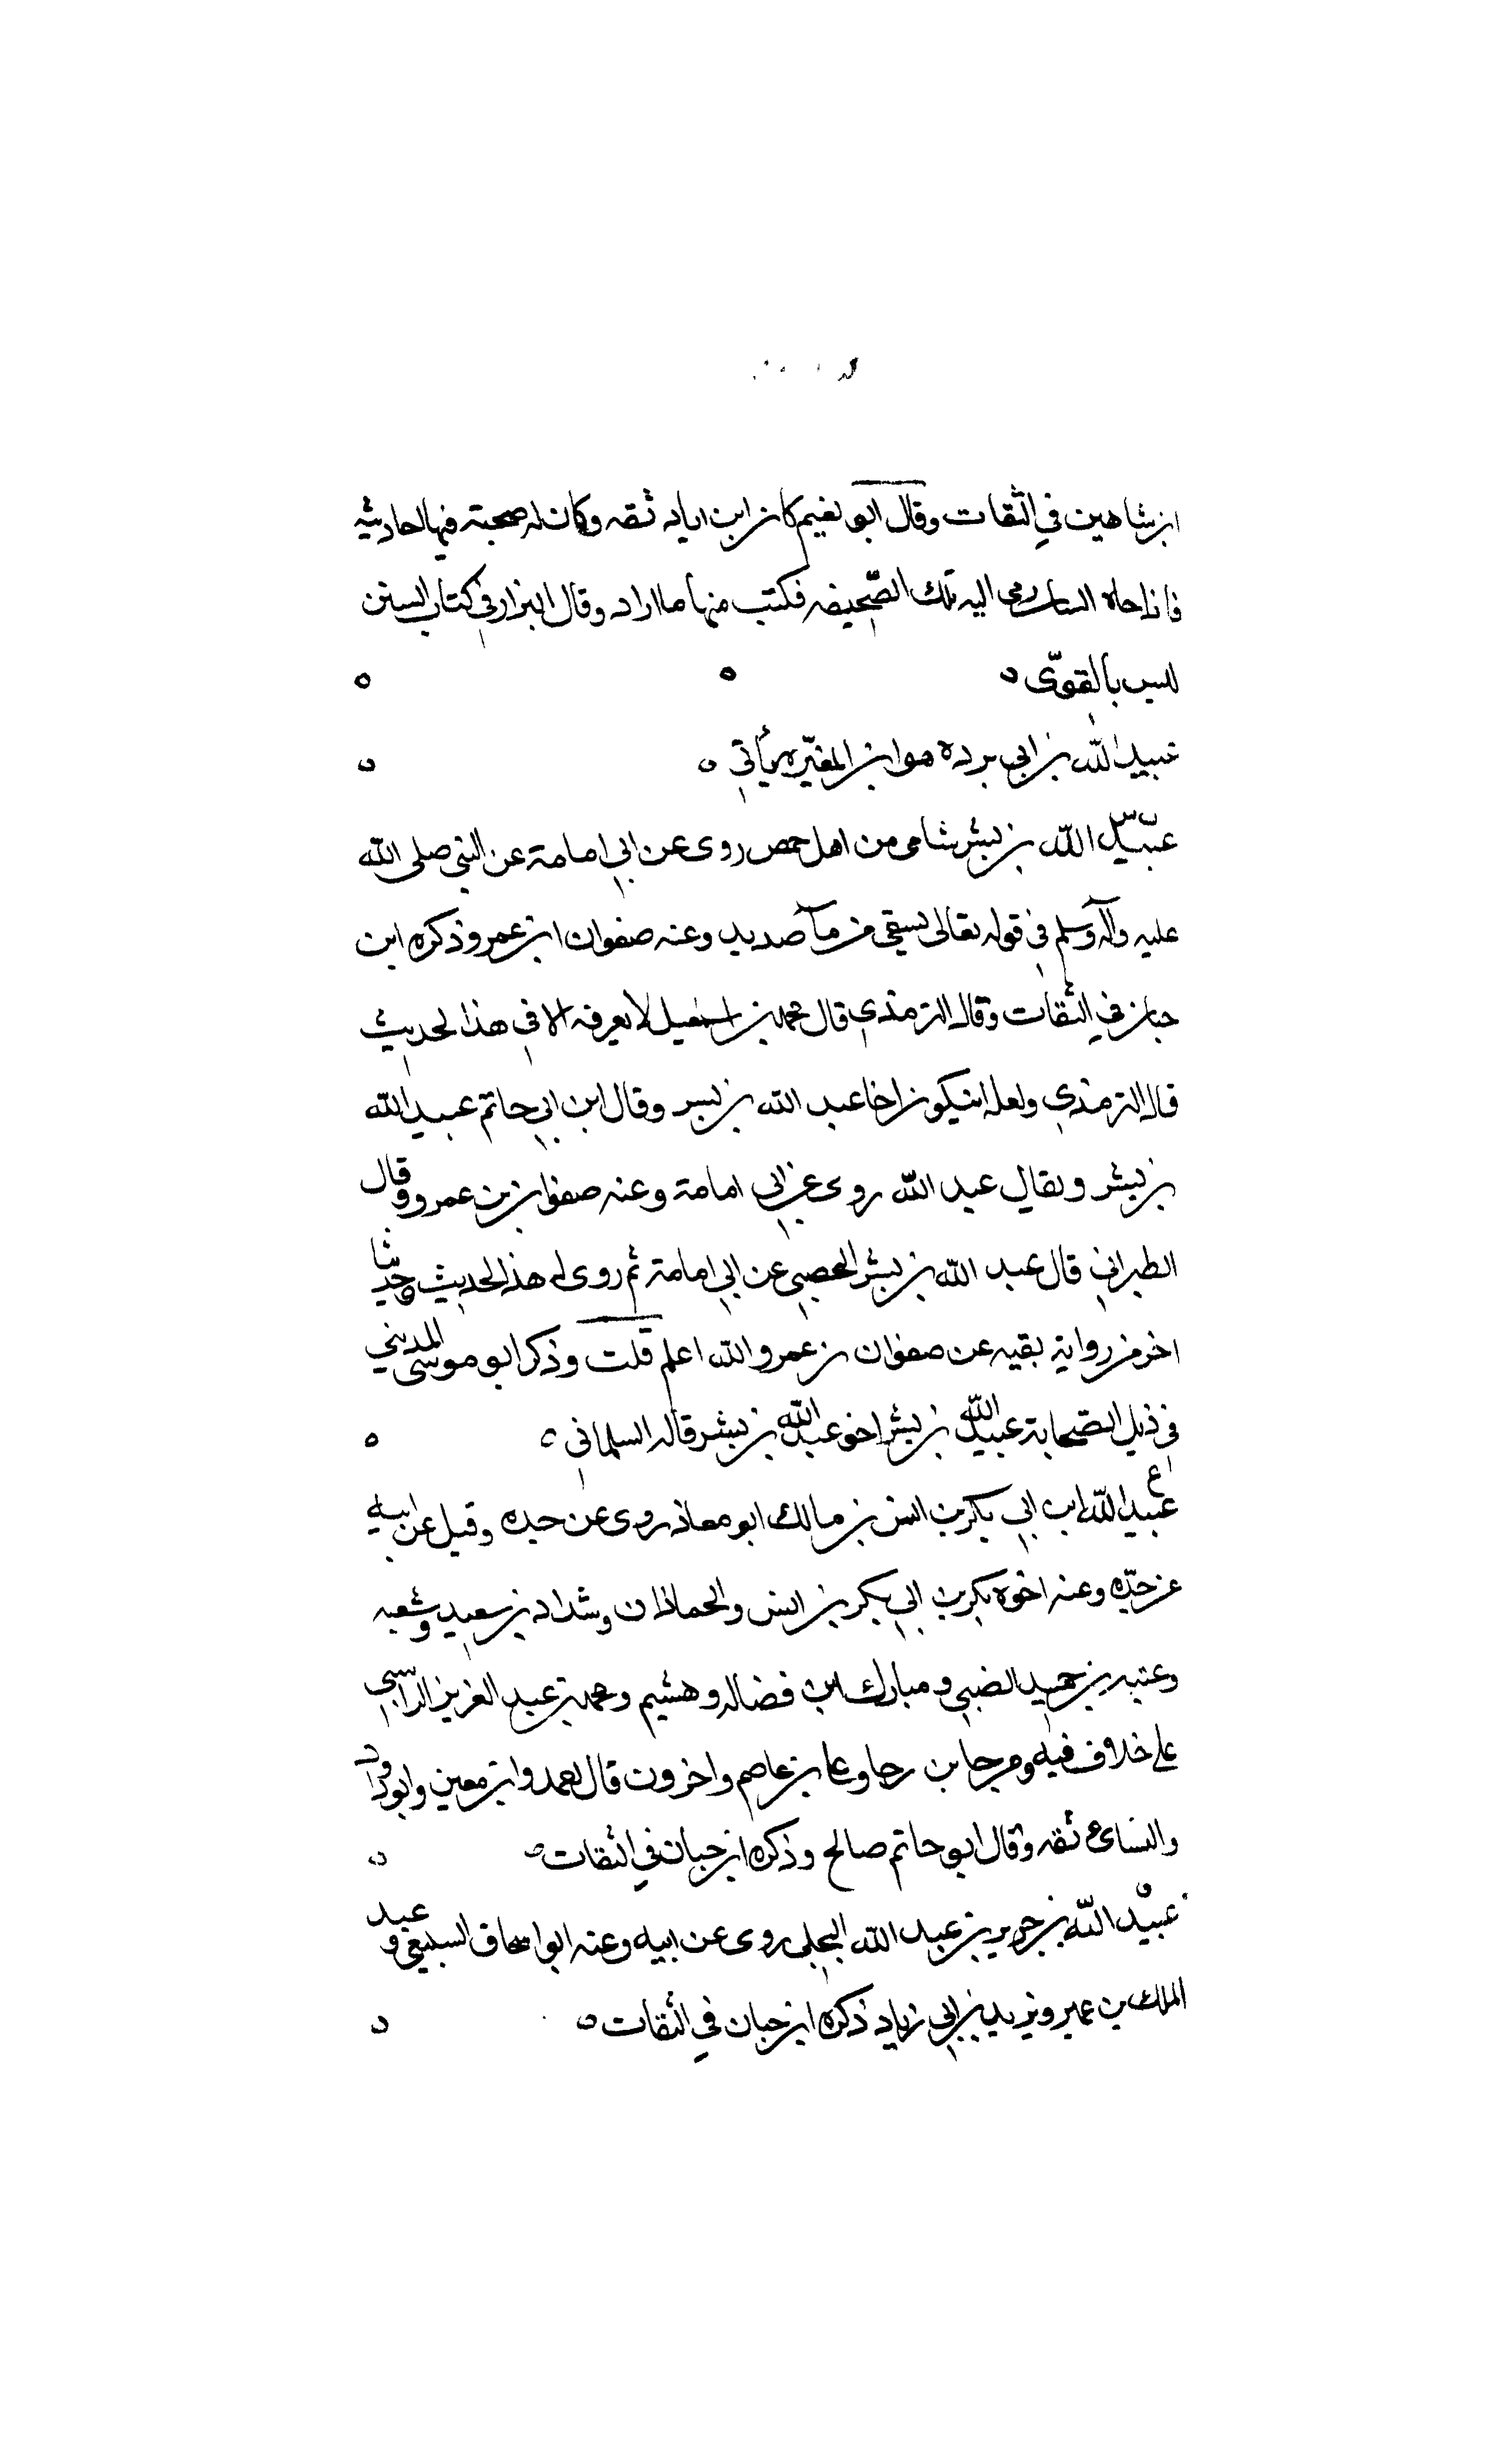 ابن شاهين في الثقات وقال ابو نعيم كان ابن اياد ثقه وكان له صحيفة فيها احاديثه
فاذا جاه انسان رمى اليه تلك الصّحيفه فكتب منها ما اراد وقال البزار في كتاب السنن
ليس بالقوىّ ه
عبيد الله بن ابي برده هو ابن المغيّره يأتي ه
عبيد الله بن بشر شامى من اهل حمص روى عن ابي امامة عن النبي صلى الله
عليه وآله وسلم في قوله تعالى يسقى من مآ صديد وعنه صفوان ابن عمرو ذكره ابن
حبان في الثقات وقال الترمذي قال محمد بن اسمعيل لا يعرفه الا في هذا الحديث
قال الترمذي ولعله ان يكون اخا عبد الله بن بسر وقال ابن ابي حاتم عبيد الله
بن بشر ويقال عبد الله روى عن ابي امامة وعنه صفوان بن عمرو وقال
الطبراني قال عبد الله بن بشر اليحصبي عن ابي امامة ثم روى له هذا الحديث وحديثا
اخر من رواية بقيه عن صفوان بن عمرو والله اعلم قلت وذكر ابو موسى المديني
في ذيل الصّحابة عبيد الله بن بشر اخو عبد الله بن بشر قاله السلماني ه
ع
عبيد الله ابن ابي بكر بن انس بن مالك ابو معاذ روى عن جده وقيل عن ابيه
عن جدّه وعنه اخوه بكر بن ابي بكر بن انس والحمادان وشداد بن سعيد وشعبه
وعتبه بن حميد الضبي ومبارك ابن فضاله وهشيم ومحمد بن عبد العزيز الراسبي
على خلاف فيه ومرجا بن رجا وعلى بن عاصم واخرون قال احمد وابن معين وابو داود
والنسائ ثقه وقال ابو حاتم صالح وذكره ابن حبان في الثقات ه
عبيد الله بن جرير بن عبد الله البجلي روى عن ابيه وعنه ابو اسحاق السبيعي وعبد
الملك بن عمير ويزيد بن ابي زياد ذكره ابن حبان في الثقات ه